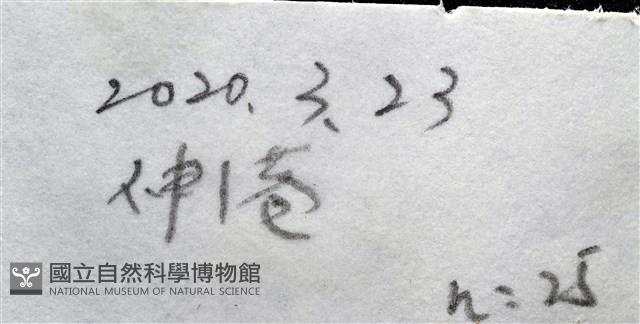 2020. 3. 23
n = 25
國立自然科學博物館
NATIONAL MUSEUM OF NATURAL SCIENCE